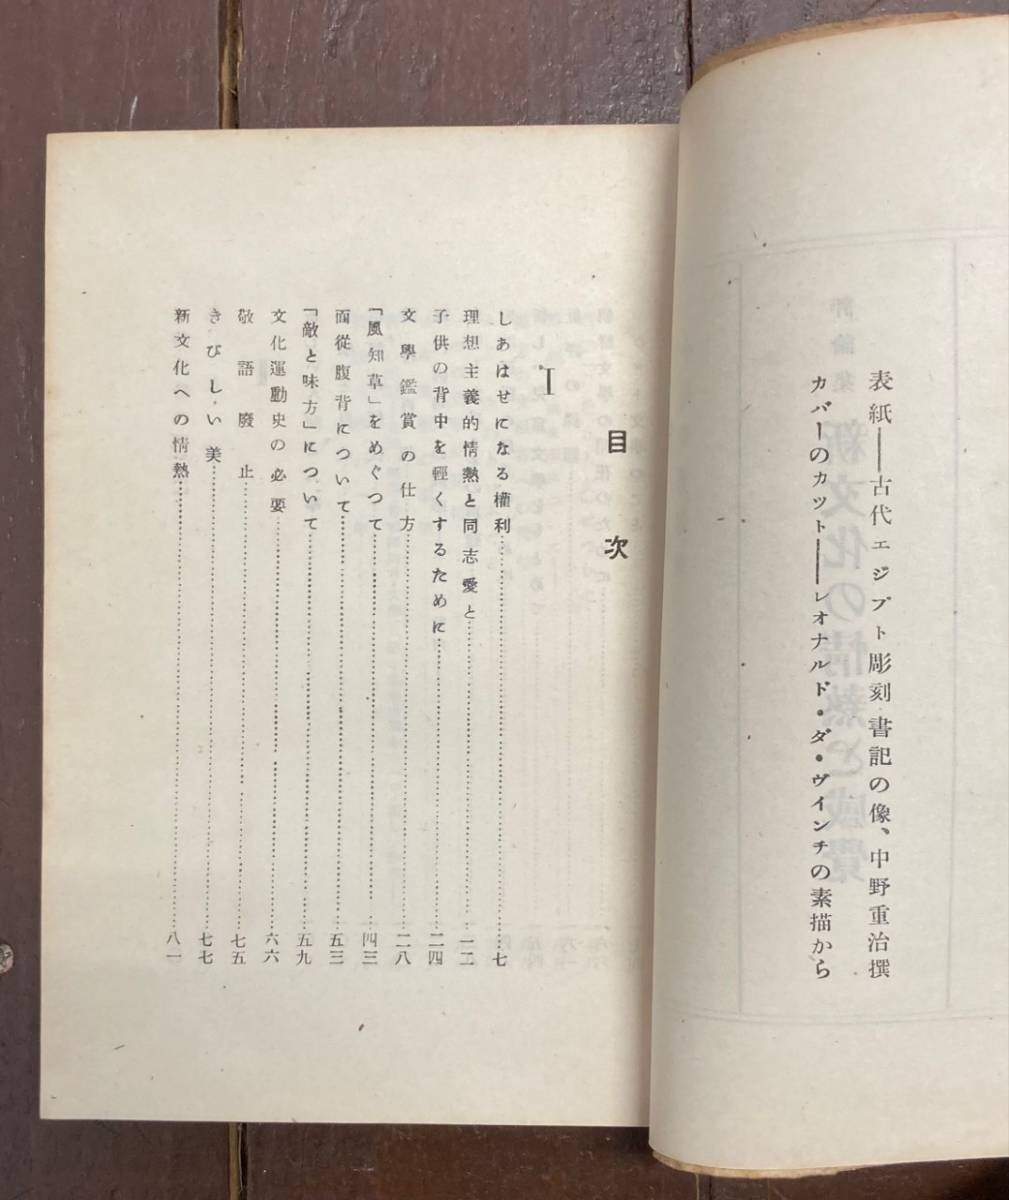 表紙――古代エジプト彫刻書記の像、中野重治撰
カバーのカツト――レオナルド・ダ・ヴインチの素描から
目次
I
しあはせになる權利……七
理想主義的情熱と同志愛と……一二
子供の背中を輕くするために……二四
文學鑑賞の仕方……二八
「風知草」をめぐつて……四三
面從腹背について……五三
「敵と味方」について……五九
文化運動史の必要……六六
敬語廢止……七五
きびしい美……七七
新文化への情熱……八一